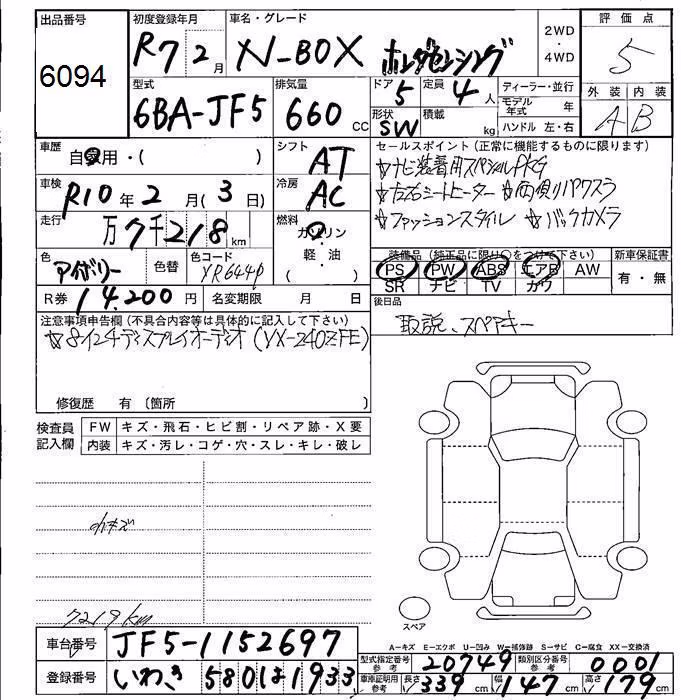 出品番号 6094
初度登録年月 R7 2月
車名・グレード N-BOX ホンダセンシング
2WD・4WD
評価点 5
外装 A 内装 B
型式 6BA-JF5
排気量 660 cc
ドア 5
定員 4人
形状 SW
積載 kg
ディーラー・並行
モデル年式 年
ハンドル 左・右
車歴 自家用・( )
シフト AT
車検 R10年2月(3日)
冷房 AC
走行 万7千218km
燃料 ガソリン・軽・油 ( )
色 アイボリー 色替 色コード YR644P
R券 14,200円 名変期限 月 日
セールスポイント (正常に機能するものに限ります)
☆ナビ装着用スペシャルPKG
☆左右シートヒーター ☆両側リパワスラ
☆ファッションスタイル ☆バックカメラ
装備品 (純正品に限り○をつけて下さい)
PS PW ABS エアB AW
SR ナビ TV カワ
新車保証書 有・無
後日品
取説、スペアキー
注意事項申告欄 (不具合内容等は具体的に記入して下さい)
☆8インチディスプレイオーディオ (VX-240ZFE)
修復歴 有 〔箇所 〕
検査員記入欄
FW キズ・飛石・ヒビ割・リペア跡・X要
内装 キズ・汚レ・コゲ・穴・スレ・キレ・破レ
小キズ
7219km
スペア
A─キズ E─エクボ U─凹み W─補修跡 S─サビ C─腐食 XX─交換済
車台番号 JF5-1152697
登録番号 いわき 580 は 1933
型式指定番号 参考 20749 類別区分番号 参考 0001
車庫証明用 参考 長さ 339cm 幅 147cm 高さ 179cm